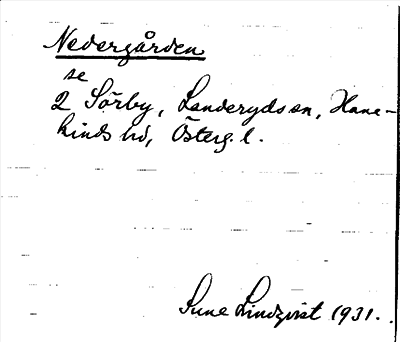 Nedergården
se
2 Sörby, Landeryds sn, Hane-
kinds hd, Österg. l.
Sune Lindqvist 1931.